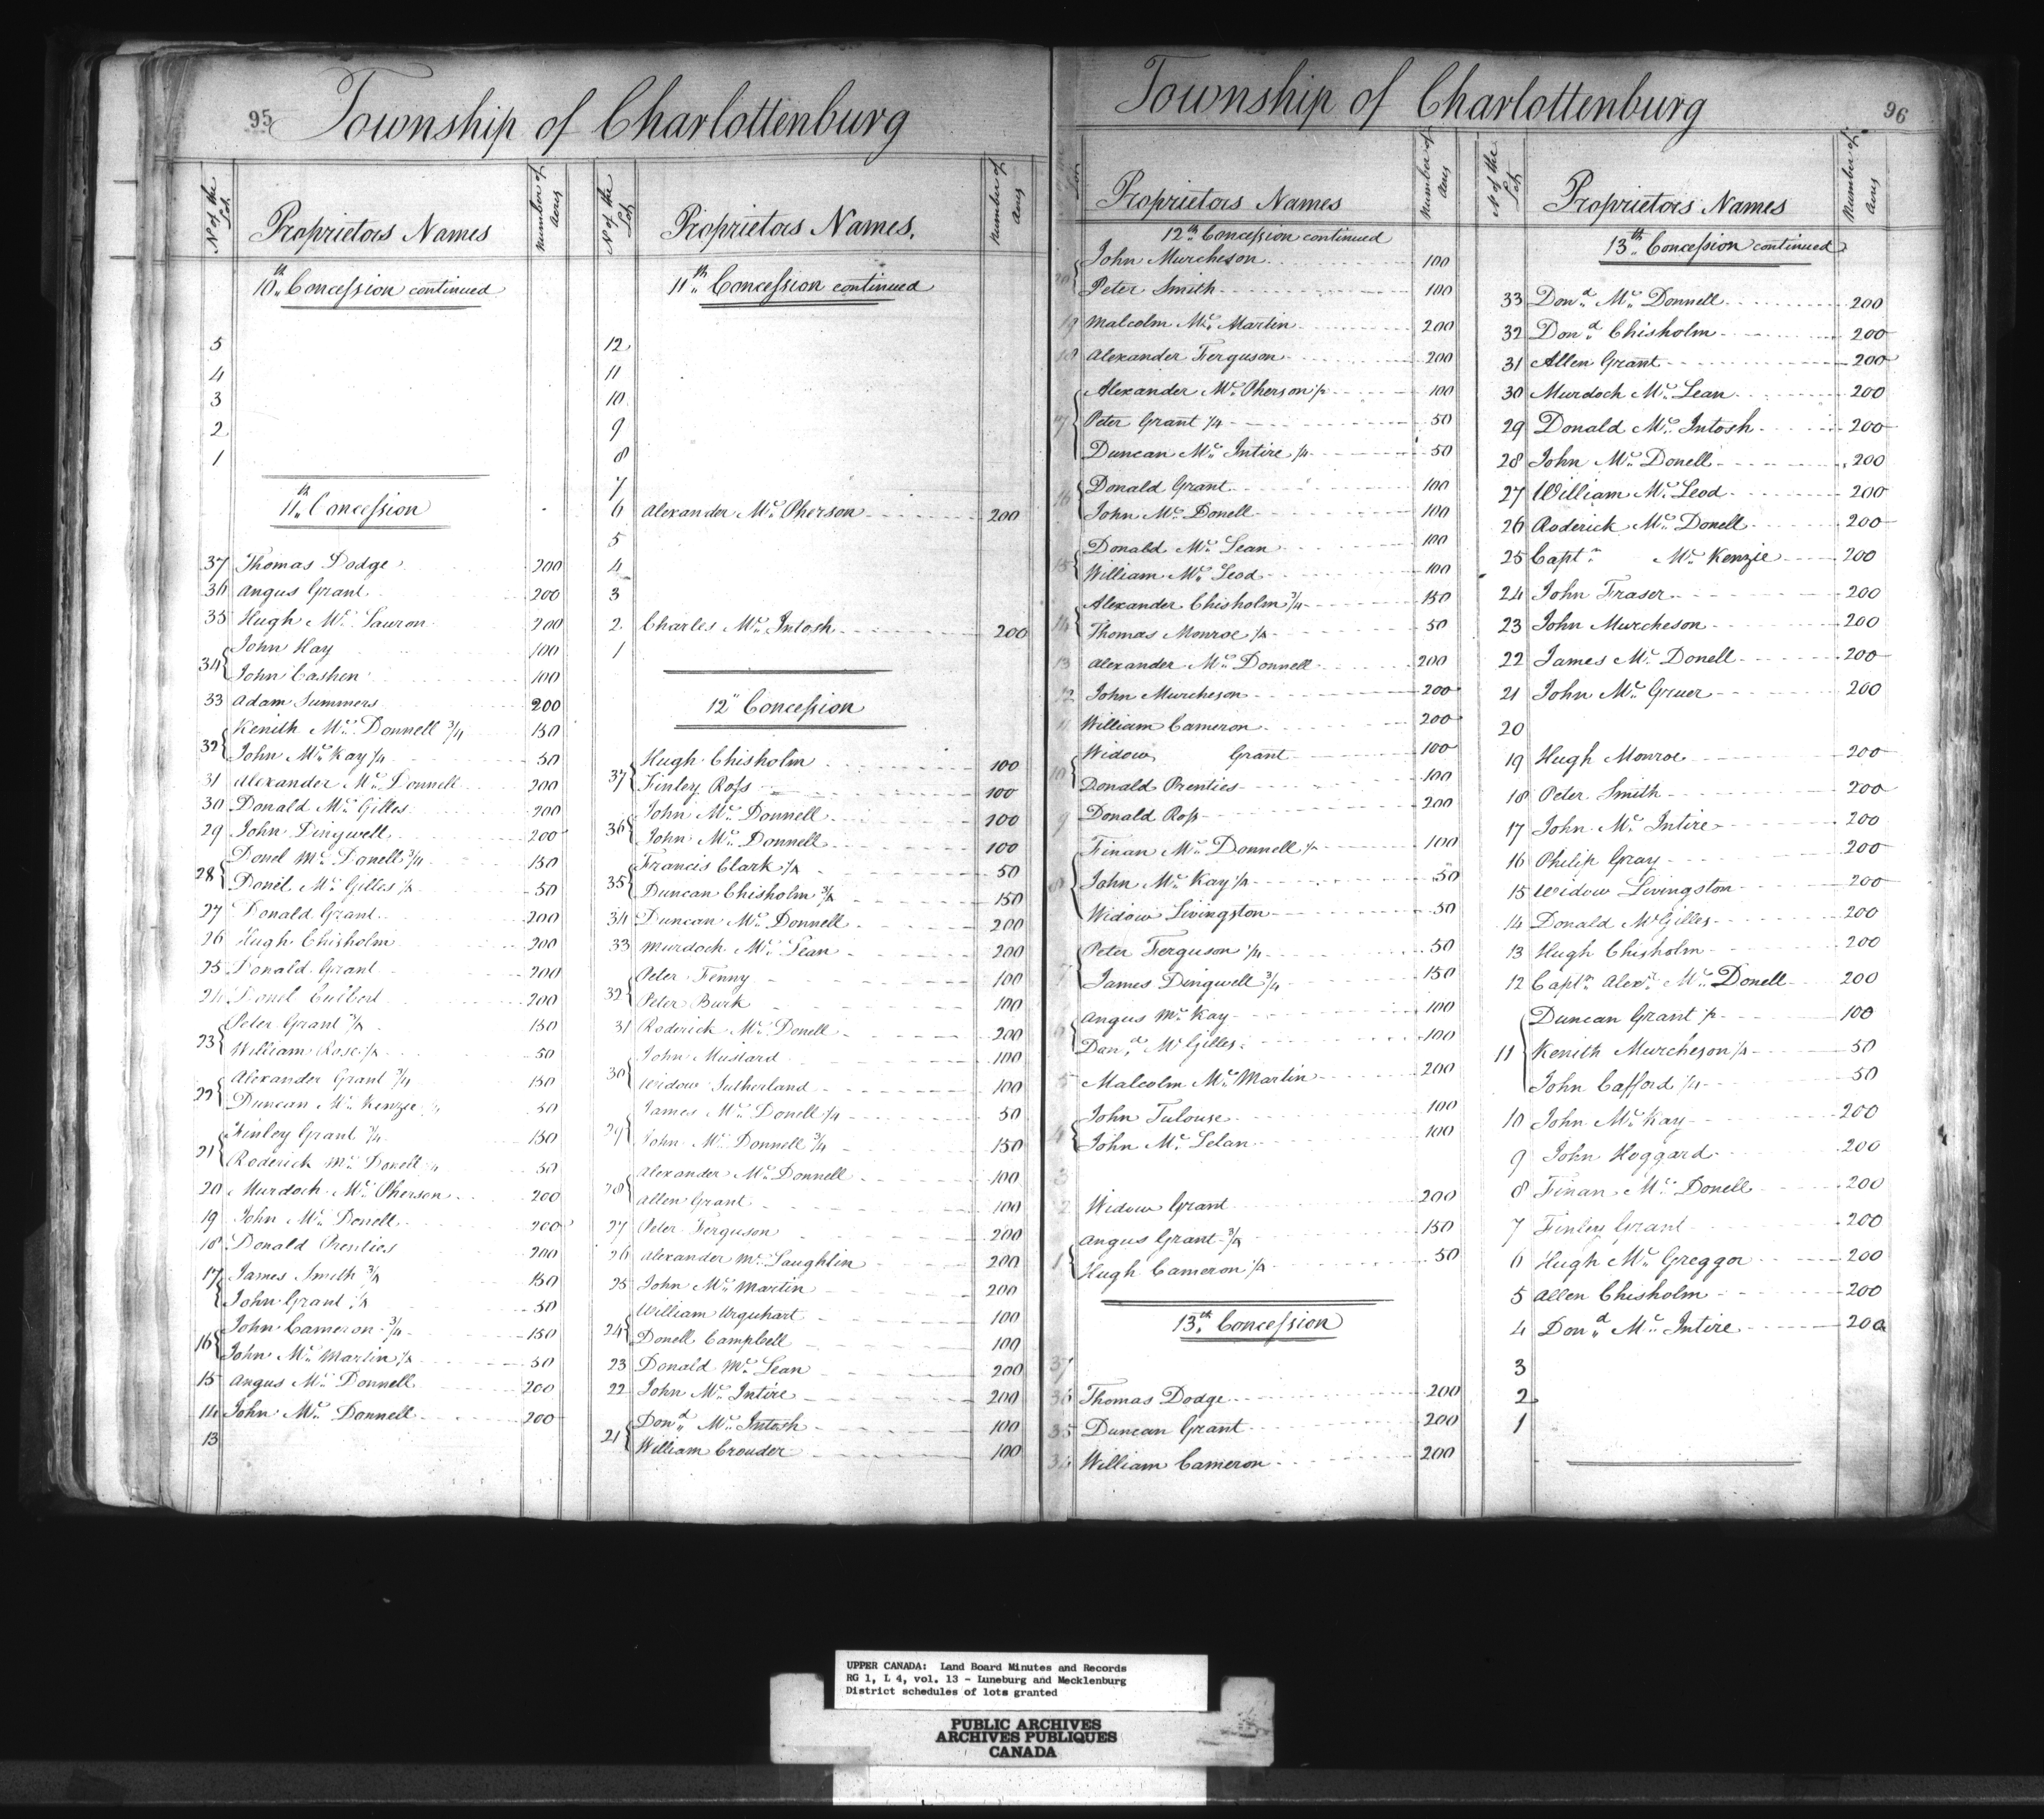 95
Township of Charlottenburg
N of the Lot
Proprietors Names
Number of Acres
10th Concession continued
5
4
3
2
1
11th Concession
37 Thomas Dodge 200
36 Angus Grant 200
35 Hugh Mc Lauron 200
34 John Hay 100
John Cashen 100
33 Adam Summers 200
32 Kenith Mc Donnell 3/4 150
John Mc Kay 1/4 50
31 Alexander Mc Donnell 200
30 Donald Mc Gilles 200
29 John Dingwell 200
28 Donel Mc Donell 3/4 150
Donel Mc Gilles 1/4 50
27 Donald Grant 200
26 Hugh Chisholm 200
25 Donald Grant 200
24 Donel Culbert 200
23 Peter Grant 3/4 150
William Rose 1/4 50
22 Alexander Grant 3/4 150
Duncan Mc Kenzie 1/4 50
21 Finley Grant 3/4 150
Roderick Mc Donell 1/4 50
20 Murdoch Mc Pherson 200
19 John Mc Donell 200
18 Donald Prenties 200
17 James Smith 3/4 150
John Grant 1/4 50
16 John Cameron 3/4 150
John Mc Martin 1/4 50
15 Angus Mc Donnell 200
14 John Mc Donnell 200
13
N of the Lot
Proprietors Names.
Number of Acres
11th Concession continued
12
11
10
9
8
7
6 Alexander Mc Pherson 200
5
4
3
2 Charles Mc Intosh 200
1
12" Concession
37 Hugh Chisholm 100
Finley Ross 100
36 John Mc Donnell 100
John Mc Donnell 100
35 Francis Clark 1/4 50
Duncan Chisholm 3/4 150
34 Duncan Mc Donnell 200
33 Murdoch Mc Lean 200
32 Peter Fenny 100
Peter Burk 100
31 Roderick Mc Donell 200
30 John Mustard 100
Widow Sutherland 100
29 James Mc Donell 1/4 50
John Mc Donnell 3/4 150
28 Alexander Mc Donnell 100
Allen Grant 100
27 Peter Ferguson 200
26 Alexander Mc Laughlin 200
25 John Mc Martin 200
24 William Urquhart 100
Donell Campbell 100
23 Donald Mc Lean 200
22 John Mc Intire 200
21 Dond Mc Intosh 100
William Crouder 100
96
Township of Charlottenburg
Lot
Proprietors Names
Number of Acres
12th Concession continued
20 John Murcheson 100
Peter Smith 100
19 Malcolm Mc Martin 200
18 Alexander Ferguson 200
17 Alexander Mc Pherson 1/2 100
Peter Grant 1/4 50
Duncan Mc Intire 1/4 50
16 Donald Grant 100
John Mc Donell 100
15 Donald Mc Lean 100
William Mc Leod 100
14 Alexander Chisholm 3/4 150
Thomas Monroe 1/4 50
13 Alexander Mc Donnell 200
12 John Murcheson 200
11 William Cameron 200
10 Widow Grant 100
Donald Prenties 100
9 Donald Ross 200
8 Finan Mc Donnell 1/2 100
John Mc Kay 1/4 50
Widow Livingston 50
7 Peter Ferguson 1/4 50
James Dingwell 3/4 150
6 Angus Mc Kay 100
Dand Mc Gilles 100
5 Malcolm Mc Martin 200
4 John Tulouse 100
John Mc Lelan 100
3
2 Widow Grant 200
1 Angus Grant 3/4 150
Hugh Cameron 1/4 50
13th Concession
37
36 Thomas Dodge 200
35 Duncan Grant 200
34 William Cameron 200
N of the Lot
Proprietors Names
Number of Acres
13th Concession continued
33 Dond Mc Donnell 200
32 Dond Chisholm 200
31 Allen Grant 200
30 Murdoch Mc Lean 200
29 Donald Mc Intosh 200
28 John Mc Donell 200
27 William Mc Leod 200
26 Roderick Mc Donell 200
25 Captn Mc Kenzie 200
24 John Fraser 200
23 John Murcheson 200
22 James Mc Donell 200
21 John Mc Gruer 200
20
19 Hugh Monroe 200
18 Peter Smith 200
17 John Mc Intire 200
16 Philip Gray 200
15 Widow Livingston 200
14 Donald McGilles 200
13 Hugh Chisholm 200
12 Captn Alexr Mc Donell 200
11 Duncan Grant 1/2 100
Kenith Murcheson 1/4 50
John Cafford 1/4 50
10 John Mc Kay 200
9 John Hoggard 200
8 Finan Mc Donell 200
7 Finley Grant 200
6 Hugh Mc Greggor 200
5 Allen Chisholm 200
4 Dond Mc Intire 200
3
2
1
UPPER CANADA: Land Board Minutes and Records
RG 1, L 4, vol. 13 - Luneburg and Mecklenburg
District schedules of lots granted
PUBLIC ARCHIVES
ARCHIVES PUBLIQUES
CANADA